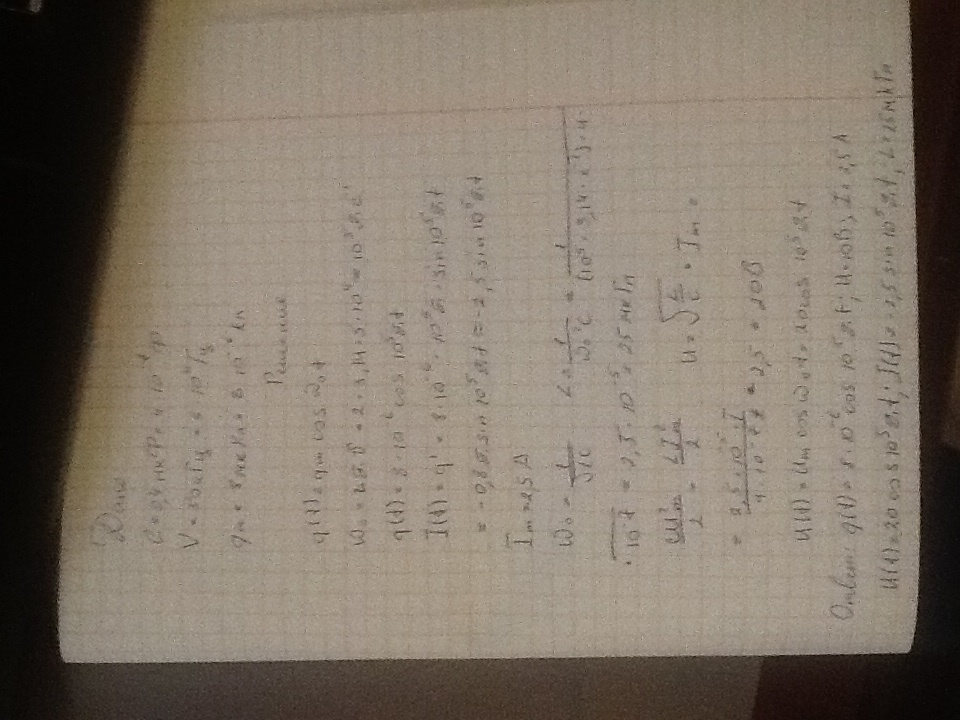 Дано
C = 0,4 мкФ = 4·10⁻⁷ Ф
V = 50 кГц = 5·10⁴ Гц
qm = 8 мкКл = 8·10⁻⁶ Кл
Решение
q(t) = qm cos ω₀t
ω₀ = 2πν = 2·3,14·5·10⁴ = 10⁵π c⁻¹
q(t) = 8·10⁻⁶ cos 10⁵πt
I(t) = q' = 8·10⁻⁶·10⁵π·sin 10⁵πt
= -0,8π sin 10⁵πt = -2,5 sin 10⁵πt
Im = 2,5 A
ω₀ = 1/√LC L = 1/ω₀²C = 1/(10⁵·3,14·c⁻¹)·4·
·10⁻⁷ = 2,5·10⁻⁵ = 25 мкГн
CU²m/2 = LI²m/2 U = √L/C · Im =
= 2,5·10⁻⁵/4·10⁻⁷ · 2,5 = 20В
U(t) = Um cos ω₀t = 20 cos 10⁵πt
Ответ: q(t) = 8·10⁻⁶ cos 10⁵πt; U = 20В; I = 2,5 A
U(t) = 20 cos 10⁵πt; I(t) = -2,5 sin 10⁵πt, L = 25 мкГн